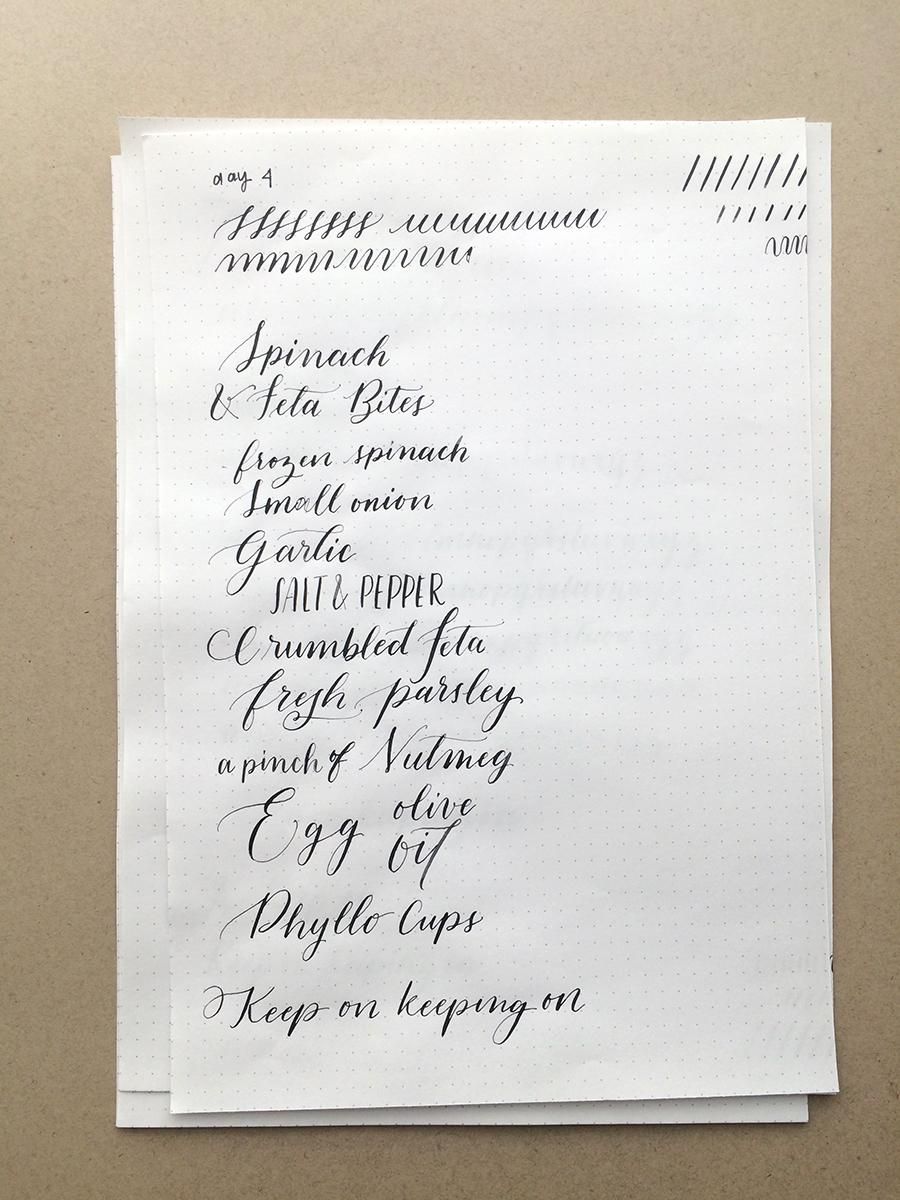 day 4
Spinach
& Feta Bites
frozen spinach
Small onion
Garlic
SALT & PEPPER
Crumbled feta
fresh parsley
a pinch of Nutmeg
Egg olive
oil
Phyllo Cups
Keep on keeping on